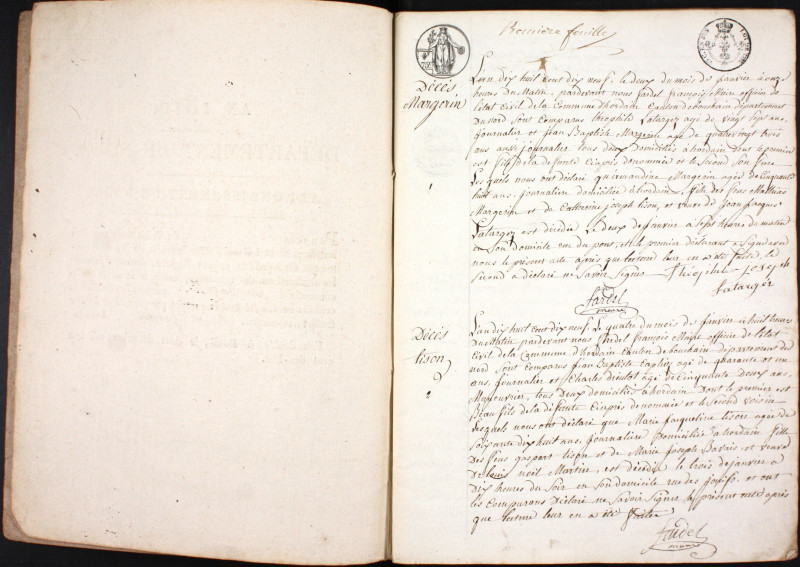 Premiere feuille
Décès
Margerin
1
L'an dix huit cent dix neuf, le deux du mois de janvier à onze
heures du Matin, pardevant nous fardel françois Maire officier de
l'etat Civil de la Commune d'hordain Canton de bouchain département
du nord sont comparus théophile Lalargez agé de vingt sept ans,
journalier et jean Baptiste Margerin agé de quatre vingt trois
ans aussi journalier tous deux domiciliés à hordain dont le premier
est fils de la defunte Ciaprès denommée et le Second Son frere
Lesquels nous ont déclaré qu'amandine Margerin agée de Cinquante
huit ans, journaliere domiciliée à hordain, fille des feus Mathias
Margerin et de Catherine joseph lison, et veuve de jean jacques
Lalargez est décédée Le deux de janvier à Sept heures du matin
en Son domicile rue du pont, et le premier déclarant a Signé avec
nous le présent acte après que lecture leur en a été faite, le
Second a déclaré ne Savoir Signer Théophile joseph
Lalargez
fardel
maire
Décès
lison
2
L'an dix huit cent dix neuf, Le quatre du mois de janvier à huit heures
du Matin pardevant nous fardel françois Maire officier de l'etat
Civil de la Commune d'hordain Canton de bouchain département du
nord Sont Comparus jean Baptiste Capliez agé de quarante et un
ans, journalier et Charles dieulot agé de Cinquante Deux ans,
Manouvrier, tous deux domiciliés à hordain dont le premier est
Beau fils de la défunte Ciaprès denommée et le Second voisin
lesquels nous ont déclaré que Marie jacqueline lison agée de
Soixante dix huit ans, journaliere Domiciliée à hordain fille
Des feus gaspart lison et de Marie joseph Davais et veuve
De louis noël Martin, est décédée le trois de janvier à
Dix heures du Soir en Son domicile rue des et ont
les Comparans Déclaré ne Savoir Signer le présent acte après
que lecture leur en a été faite
fardel
maire